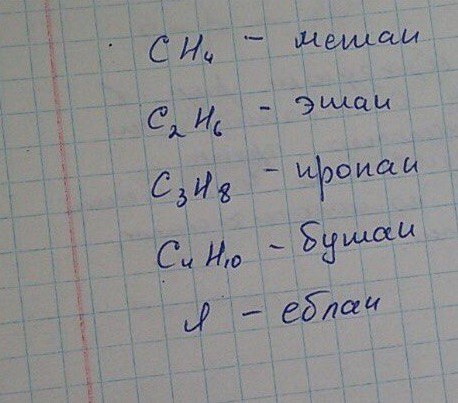 CH₄ - метан
C₂H₆ - этан
C₃H₈ - пропан
C₄H₁₀ - бутан
Я - еблан